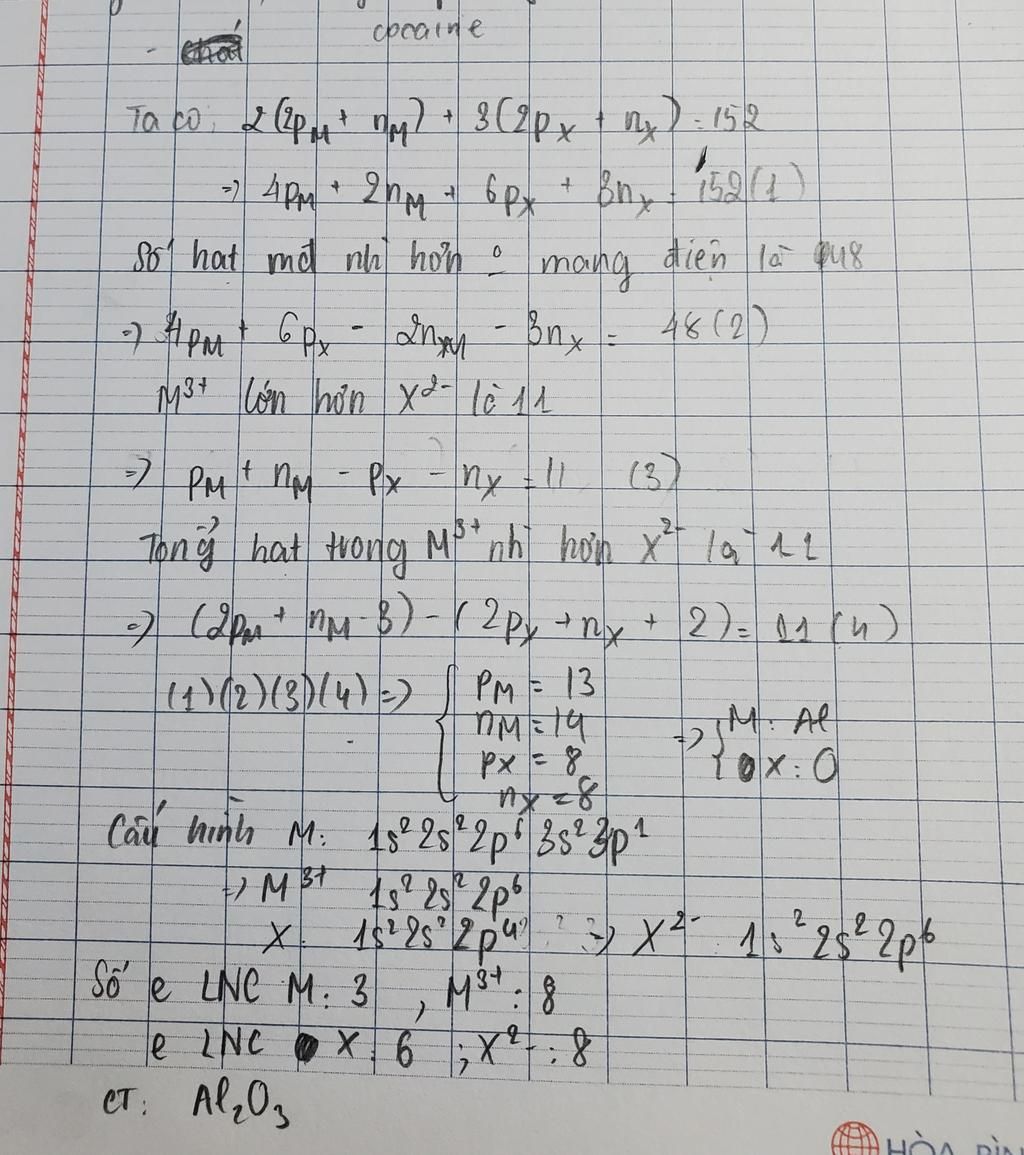 cocaine
-
Ta có: 2(2pM + nM) + 3(2pX + nX) = 152
=> 4pM + 2nM + 6pX + 3nX = 152 (1)
Số hat mđ nhì hơn 0 mang điện là 48
=> 4pM + 6pX - 2nM - 3nX = 48 (2)
M³⁺ lớn hơn X²⁻ là 11
=> pM + nM - pX - nX = 11 (3)
Tổng hat trong M³⁺ nhì hơn X²⁻ là 11
=> (2pM + nM - 3) - (2pX + nX + 2) = 11 (4)
(1)(2)(3)(4) => { pM = 13
nM = 14
pX = 8
nX = 8
=> { M: Al
X: O
Cấu hình M: 1s² 2s² 2p⁶ 3s² 3p¹
=> M³⁺ 1s² 2s² 2p⁶
X: 1s² 2s² 2p⁴ => X²⁻ 1s² 2s² 2p⁶
Số e LNC M: 3 , M³⁺: 8
e LNC X: 6 ; X²⁻: 8
CT: Al₂O₃
HÒA BÌN